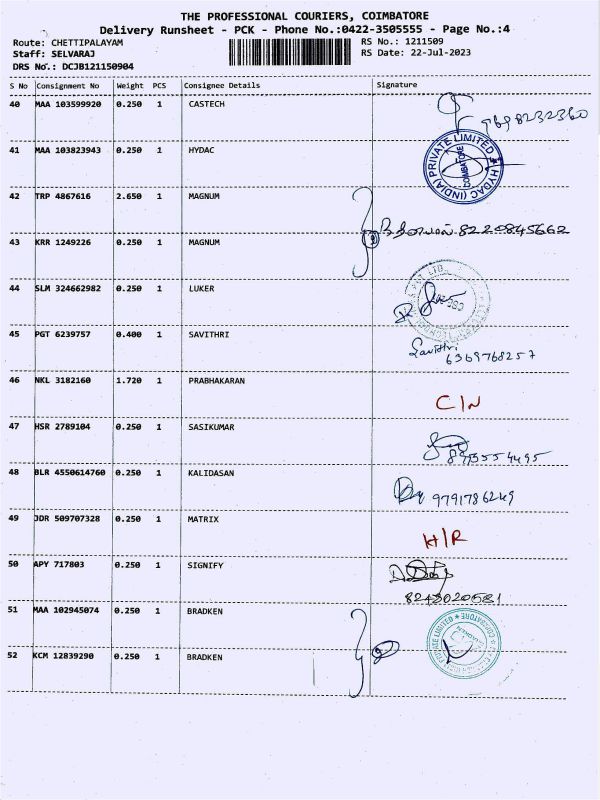 THE PROFESSIONAL COURIERS, COIMBATORE
Delivery Runsheet - PCK - Phone No.:0422-3505555 - Page No.:4
Route: CHETTIPALAYAM RS No.: 1211509
Staff: SELVARAJ RS Date: 22-Jul-2023
DRS No.: DCJB121150904
S No Consignment No Weight PCS Consignee Details Signature
40 MAA 103599920 0.250 1 CASTECH
41 MAA 103823943 0.250 1 HYDAC
HYDAC (INDIA) PRIVATE LIMITED ★ COIMBATORE
42 TRP 4867616 2.650 1 MAGNUM
43 KRR 1249226 0.250 1 MAGNUM 8220845662
44 SLM 324662982 0.250 1 LUKER
45 PGT 6239757 0.400 1 SAVITHRI Savithri
6369768257
46 NKL 3182160 1.720 1 PRABHAKARAN C/N
47 HSR 2789104 0.250 1 SASIKUMAR
48 BLR 4550614760 0.250 1 KALIDASAN 9791786249
49 JDR 509707328 0.250 1 MATRIX H/R
50 APY 717803 0.250 1 SIGNIFY
8248020581
51 MAA 102945074 0.250 1 BRADKEN
52 KCM 12839290 0.250 1 BRADKEN